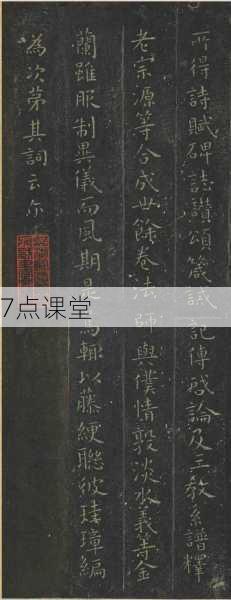 所得詩賦碑誌讃頌箴誡記傳啓論及三教系譜釋
老宗源等合成卅餘卷法師與僕情敦淡水義等金
蘭雖服制異儀而風期是篤輒以藤綆聯彼珪璋編
為次第其詞云尔
7点课堂